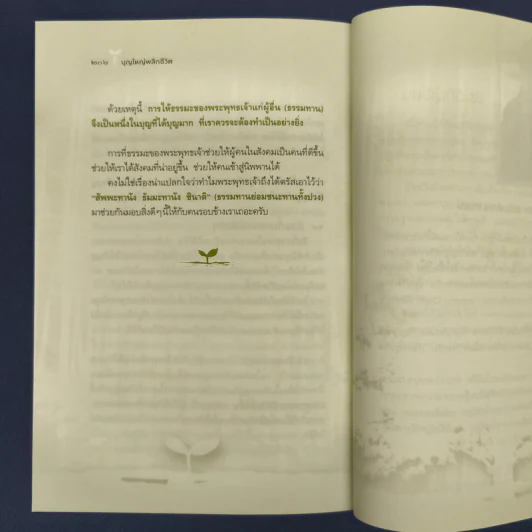 ๒๐๖ บุญใหญ่พลิกชีวิต
ด้วยเหตุนี้ การให้ธรรมะของพระพุทธเจ้าแก่ผู้อื่น (ธรรมทาน)
จึงเป็นหนึ่งในบุญที่ได้บุญมาก ที่เราควรจะต้องทำเป็นอย่างยิ่ง
การที่ธรรมะของพระพุทธเจ้าช่วยให้ผู้คนในสังคมเป็นคนที่ดีขึ้น
ช่วยให้เราได้สังคมที่น่าอยู่ขึ้น ช่วยให้คนเข้าสู่นิพพานได้
คงไม่ใช่เรื่องน่าแปลกใจว่าทำไมพระพุทธเจ้าถึงได้ตรัสเอาไว้ว่า
"สัพพะทานัง ธัมมะทานัง ชินาติ" (ธรรมทานย่อมชนะทานทั้งปวง)
มาช่วยกันมอบสิ่งดีๆ นี้ให้กับคนรอบข้างเราเถอะครับ